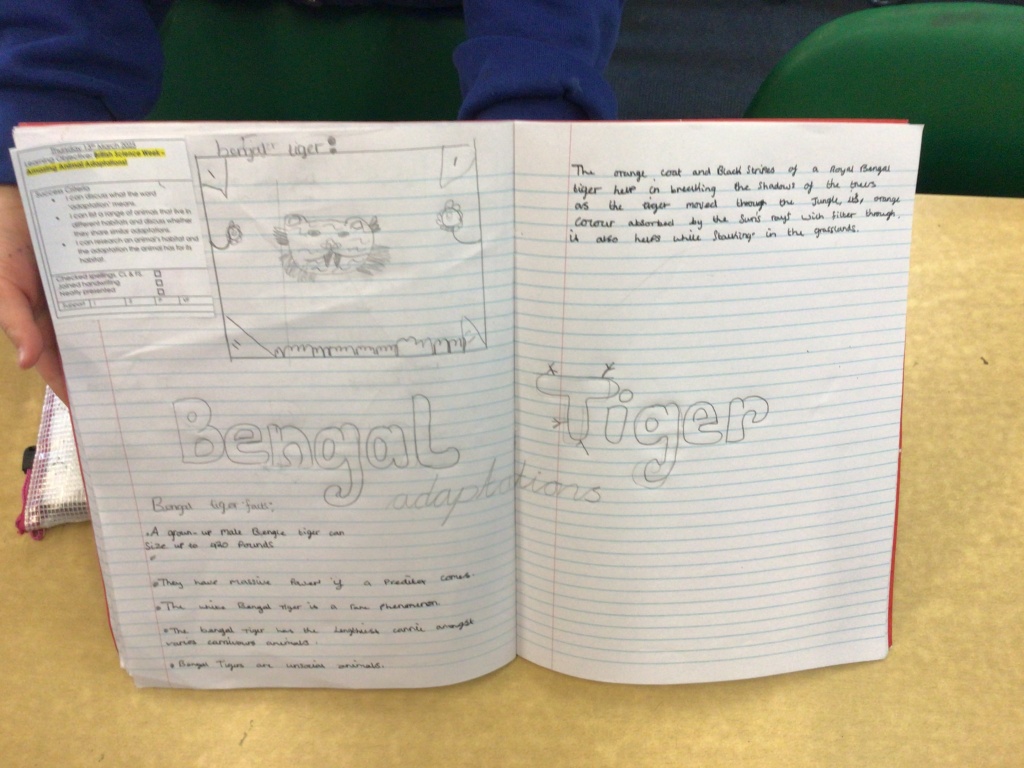 Thursday 13th March 2025
Learning Objective: British Science Week -
Amazing Animal Adaptations!
Success Criteria
I can discuss what the word
'adaptation' means.
I can list a range of animals that live in
different habitats and discuss whether
they share similar adaptations.
I can research an animal's habitat and
the adaptation the animal has for its
habitat.
Checked spellings, CL & FS.
Joined handwriting
Neatly presented
Support
bengal tiger:
Bengal Tiger
adaptations
Bengal tiger facts:
A grown-up male Bengle tiger can
Size up to 420 Pounds
They have massive Power if a Prediter comes.
The white Bengal tiger is a rare Phenomenon.
The bengal tiger has the lengthiest cannie amongst
varios carnivours animals.
Bengal Tigers are unsocial animals.
The orange coat and Black Stripes of a Royal Bengal
tiger help in breathing the Shadows of the trees
as the tiger moved through the Jungle, its, orange
Colour absorbed by the Sun's rays wich filter through.
it also helps while Stalking in the grasslands.